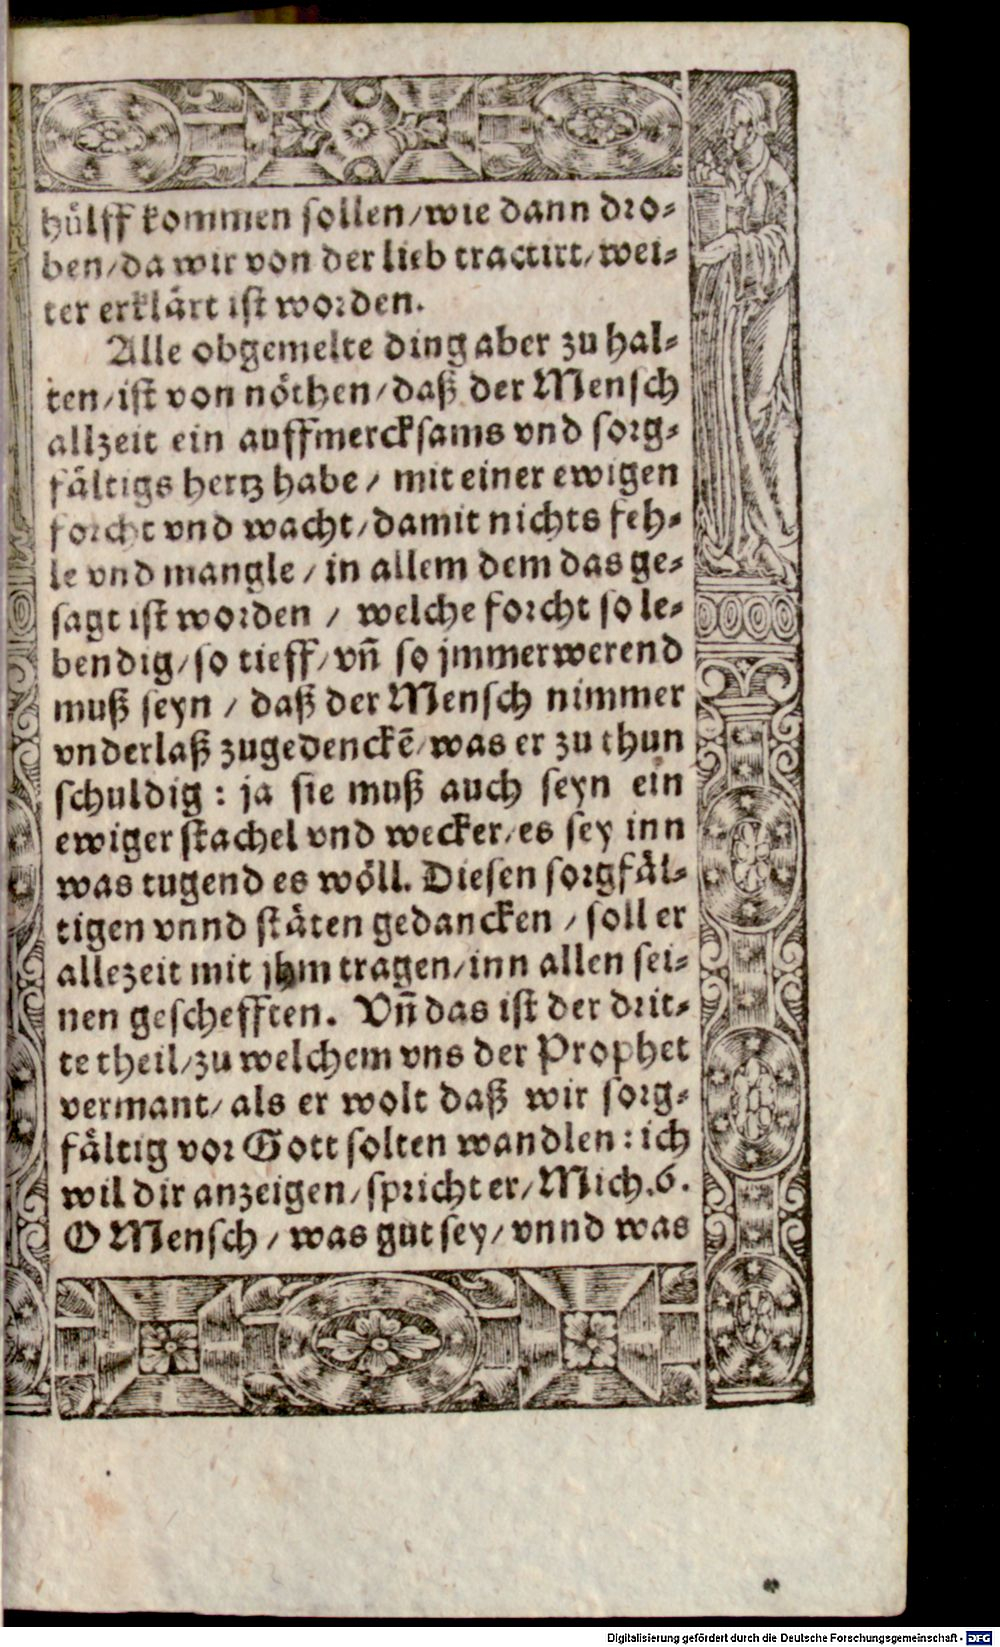 hülff kommen sollen/wie dann dro⸗
ben/da wir von der lieb tractirt/wei⸗
ter erklärt ist worden.
Alle obgemelte ding aber zu hal⸗
ten/ist von nöthen/daß der Mensch
allzeit ein auffmercksams vnd sorg⸗
fältigs hertz habe/ mit einer ewigen
forcht vnd wacht/damit nichts feh⸗
le vnd mangle/in allem dem das ge⸗
sagt ist worden / welche forcht so le⸗
bendig/so tieff/vn̄ so jmmerwerend
muß seyn / daß der Mensch nimmer
vnderlaß zugedenckē/was er zu thun
schuldig: ja sie muß auch seyn ein
ewiger stachel vnd wecker/es sey inn
was tugend es wöll. Diesen sorgfäl⸗
tigen vnnd stäten gedancken /soll er
allezeit mit jhm tragen/inn allen sei⸗
nen geschefften. Vn̄ das ist der drit⸗
te theil/zu welchem vns der Prophet
vermant/als er wolt daß wir sorg⸗
fältig vor Gott solten wandlen: ich
wil dir anzeigen/spricht er/Mich.6.
O Mensch/was gut sey/vnnd was
Digitalisierung gefördert durch die Deutsche Forschungsgemeinschaft - DFG